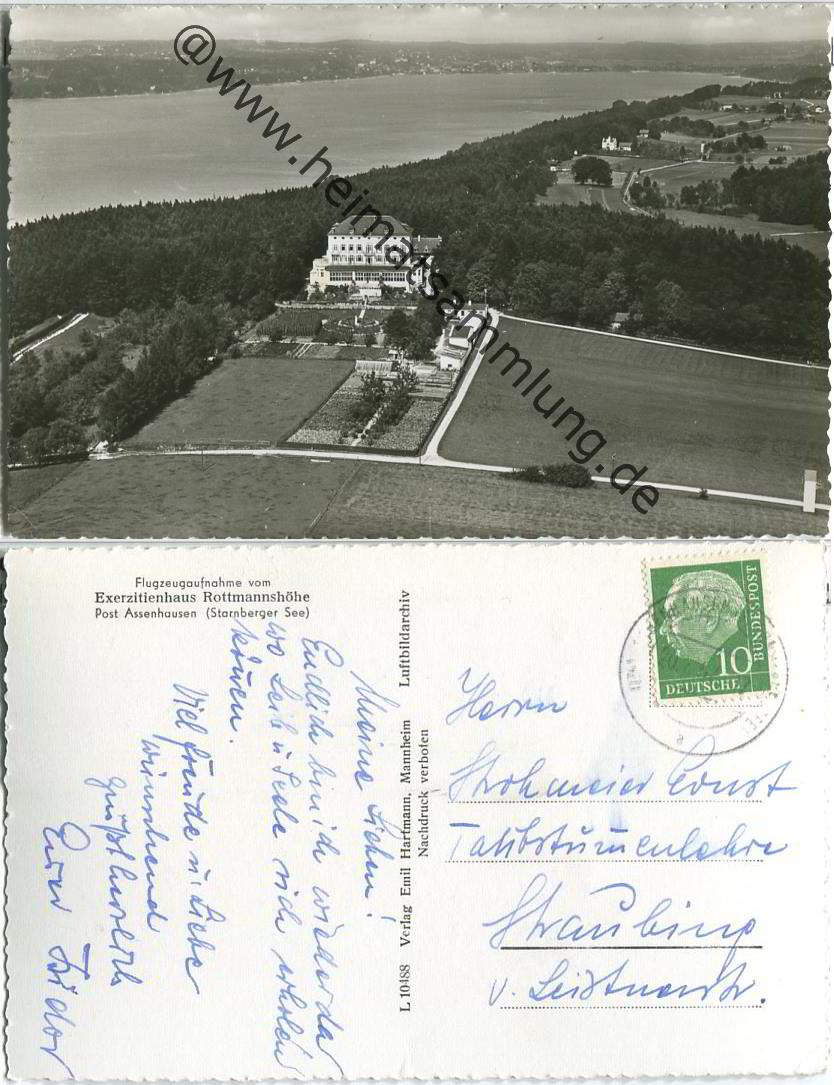 @www.heimatsammlung.de
Flugzeugaufnahme vom
Exerzitienhaus Rottmannshöhe
Post Assenhausen (Starnberger See)
Meine Lieben!
Endlich bin ich wieder da
wo Leib u. Seele sich erholen
können.
Viel Freude u. Liebe
wünschend
grüßt herzlich
Euer Isidor
L 10488 Verlag Emil Hartmann, Mannheim Luftbildarchiv
Nachdruck verboten
10
DEUTSCHE
BUNDESPOST
Herrn
Strohmeier Ernst
Straubing
v. Leistnerstr.